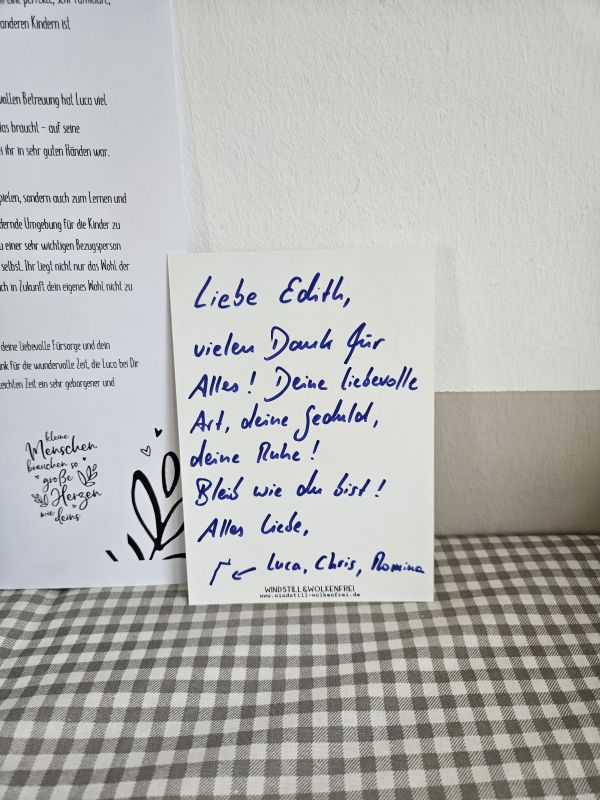 anderen Kindern ist
vollen Betreuung hat Luca viel
das braucht – auf seine
ei ihr in sehr guten Händen war.
pielen, sondern auch zum Lernen und
dernde Umgebung für die Kinder zu
u einer sehr wichtigen Bezugsperson
selbst. Ihr liegt nicht nur das Wohl der
ch in Zukunft dein eigenes Wohl nicht zu
deine liebevolle Fürsorge und dein
nk für die wundervolle Zeit, die Luca bei Dir
leichten Zeit ein sehr geborgener und
kleine
Menschen
brauchen so
große
Herzen
wie
deins
Liebe Edith,
vielen Dank für
Alles! Deine liebevolle
Art, deine Geduld,
deine Ruhe!
Bleib wie du bist!
Alles Liebe,
Luca, Chris, Romina
WINDSTILL&WOLKENFREI
www.windstill-wolkenfrei.de